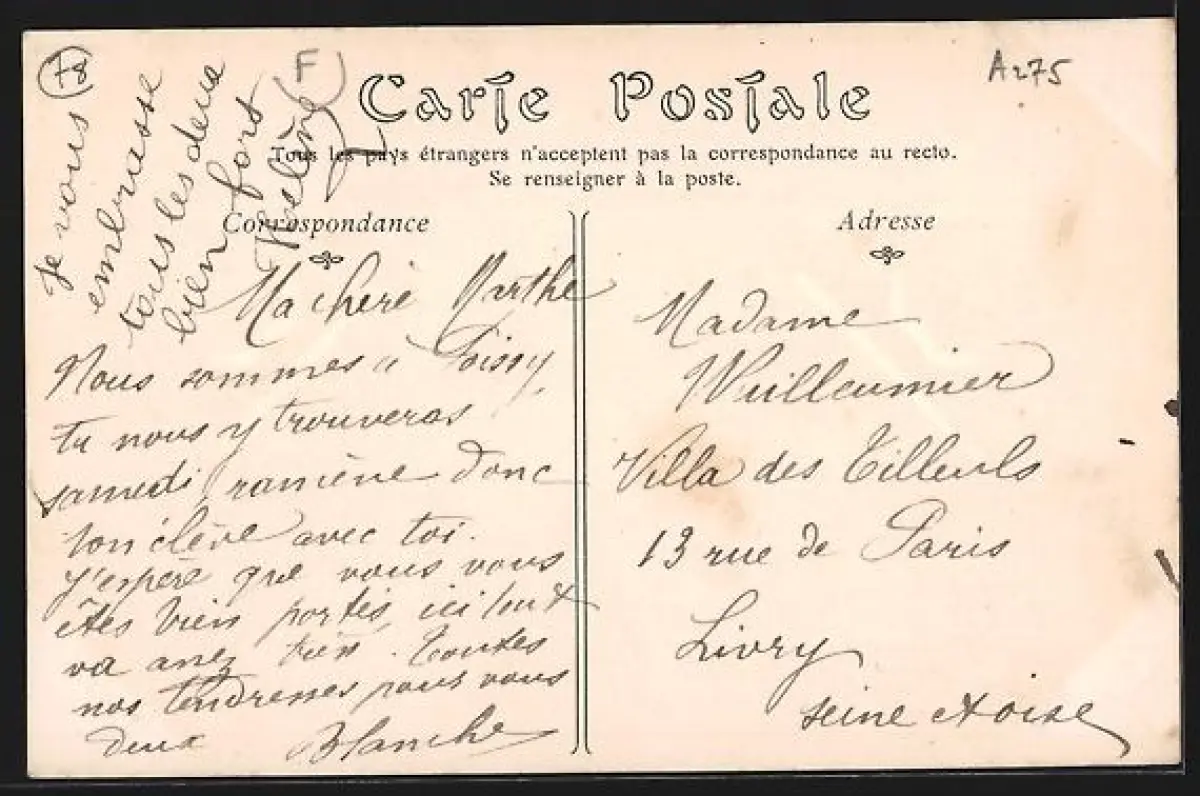 78
F
A275
Carte Postale
Tous les pays étrangers n'acceptent pas la correspondance au recto.
Se renseigner à la poste.
Correspondance
Adresse
Je vous
embrasse
tous les deux
bien fort
Ma chère Marthe
Nous sommes à Poissy,
tu nous y trouveras
samedi, ramène donc
ton élève avec toi.
J'espère que vous vous
êtes bien portés ici tout
va assez bien. Toutes
nos tendresses pour vous
deux Blanche
Madame
Wuilleumier
Villa des Tilleuls
13 rue de Paris
Livry
Seine et Oise